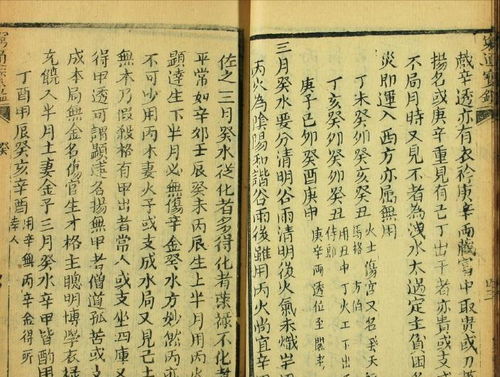 藏辛透亦有衣衿庚辛兩藏富中取貴或刀
揚名或庚辛重見有己丁出干者亦貴或支
水局月時又見水者為水太過定主困
災即運入西方亦屬無用
丁未癸卯癸亥癸丑 火土傷官又名
馬格 方伯
丁亥癸卯癸亥癸丑 用丑中丁火
侍郎
庚子己卯癸酉庚申 庚辛兩透位至閣老
三月癸水要分清明谷雨清明後火氣未熾
丙火為陰陽和諧谷雨後雖用丙火尚宜辛
佐之三月癸水從化者多得化者榮祿不化者
平常如辛卯壬辰癸未丙辰生上半月用丙火
顯達生下半月必無傷辛金癸水方妙然丙
不可少用丙木妻火子或支成水局又見己土
無木乃假殺格有甲出者常人或支坐四庫又
得甲透可謂顯達名揚無甲者僧道孤苦或支
成木局無金名傷官生才格主聰明博學衣祿
充饒又半月土妻金子三月癸水辛甲皆酌用
丁酉甲辰癸亥辛酉 用辛無丙辛金得所
舉人
癸